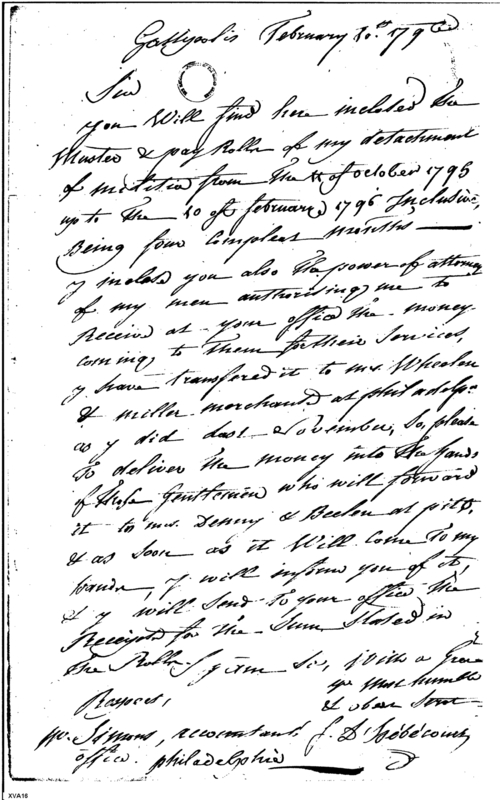 Gallypolis February 10th 1796
Sir
you Will find here inclosed the
Muster & pay Rolls of my detachment
of militia from The 11 of October 1795
up to The 10 of february 1796 Inclusive,
Being four Compleat months
y inclose you also The power of attorney
of my men authorising me to
Receive at your office the money
coming to Them for their Services,
y have transfered it to mrs Wheelen
& miller merchand at philadelp.
as y did last November, So, please
To deliver the money into the hands
of those Gentlemen who will forward
it to mrs. Denny & Beelen at pitts,
& as Soon as it Will Come To my
hands, y will inform you of it,
& y will Send To your office The
Receipts for the Sum Stated in
The Rolls. y am Sir, With a Great
Respect,
yr Most humble
& obdt Servt
Mr. Simons, accountant
office. philadelphia
f. D'hébécourt
XVA16